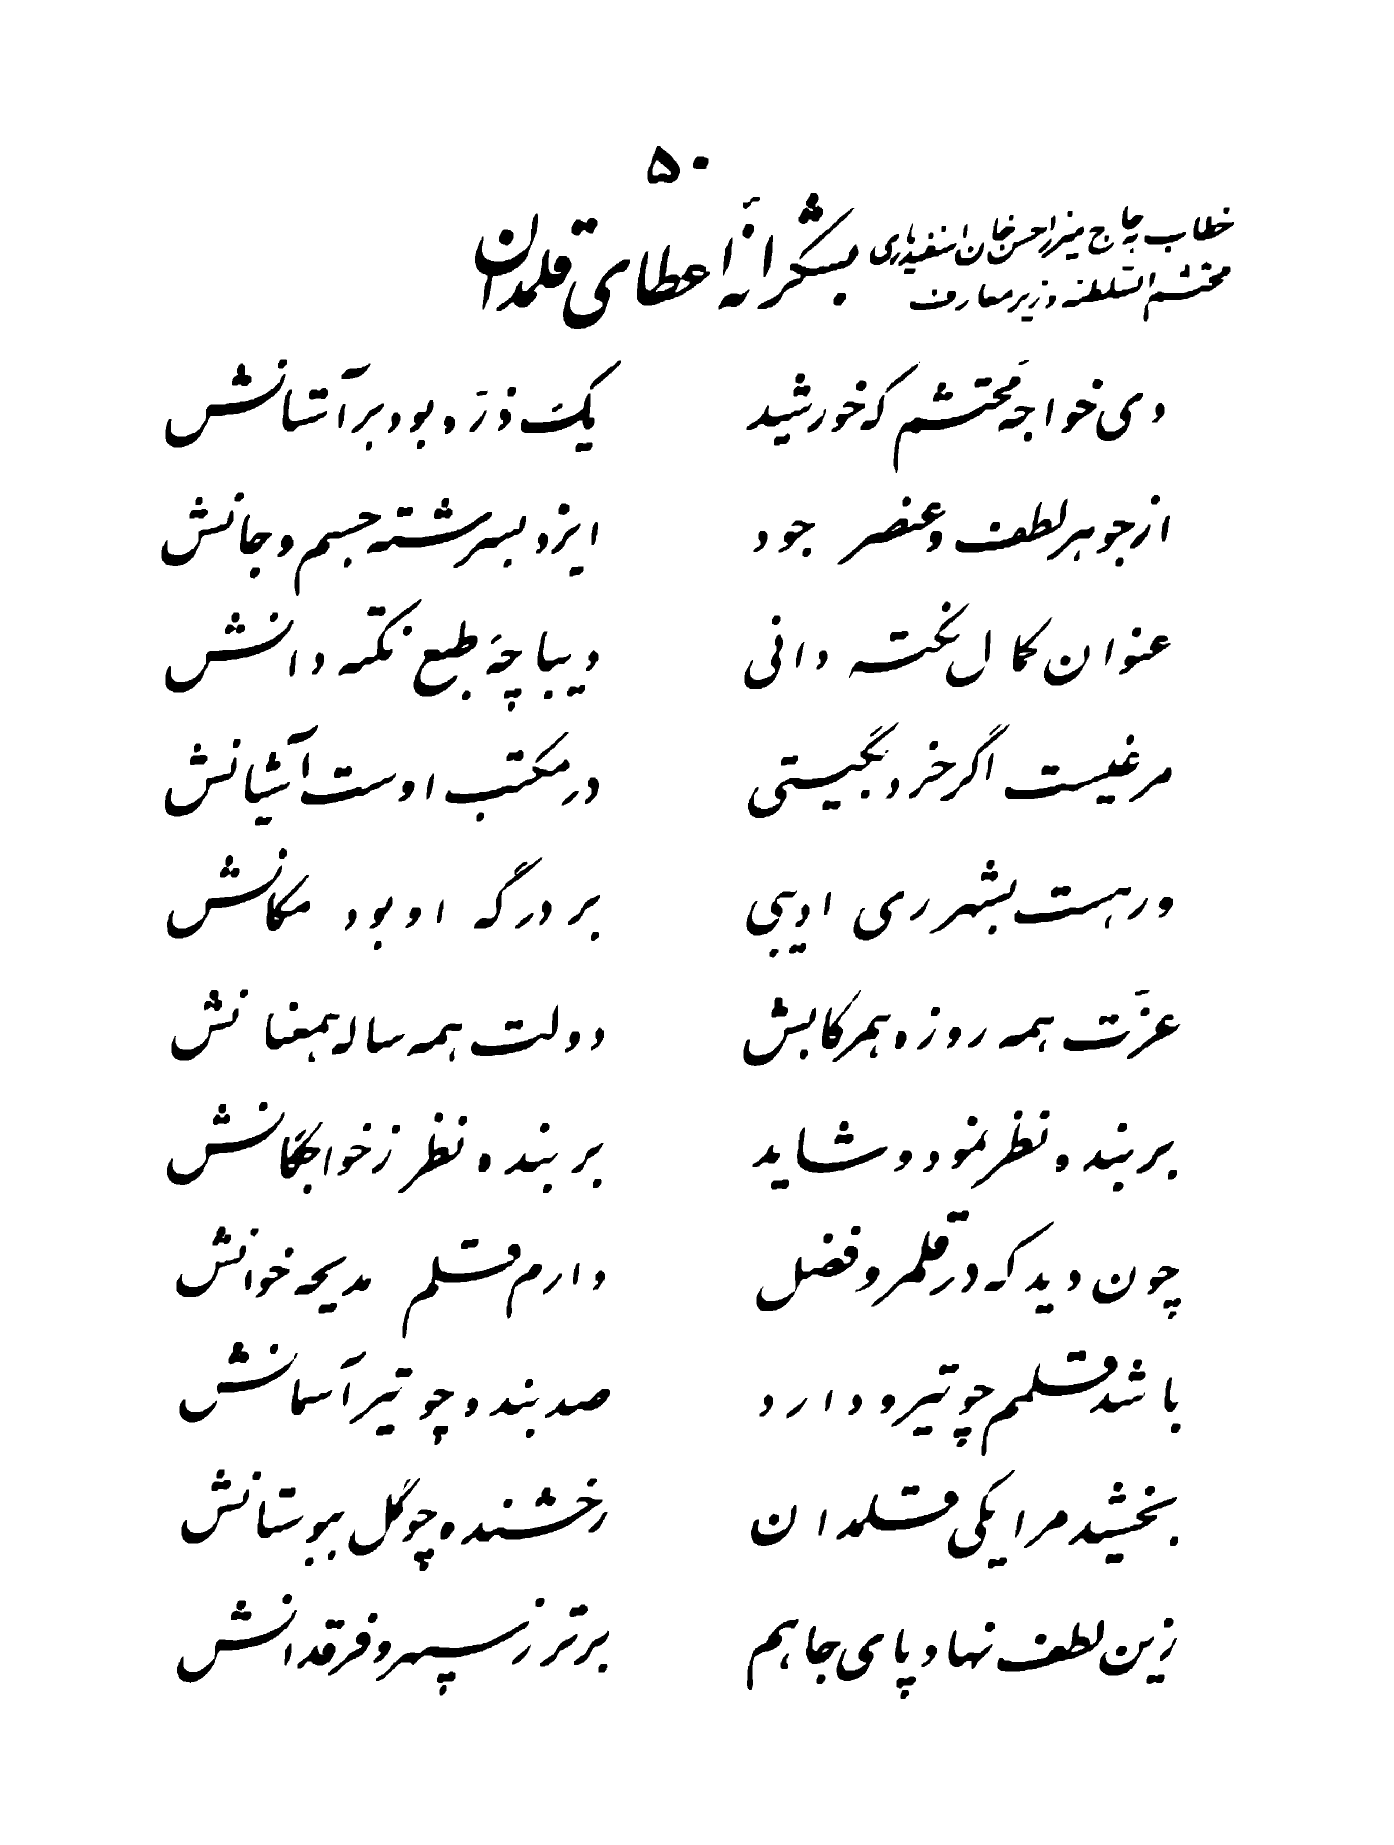 ۵۰
خطاب به حاج میرزا حسن خان اسفندیاری
محتشم السّلطنه وزیر معارف
بشکرانهٔ اعطای قلمدان
دی خواجه محتشم که خورشید یک ذرّه بود بر آستانش
از جوهر لطف و عنصر جود ایزد بسرشته جسم و جانش
عنوان کمال نکته دانی دیباچهٔ طبع نکته دانش
مرغیست اگر خرد بگیتی در مکتب اوست آشیانش
ور هست بشهر ری ادیبی بر درگه او بود مکانش
عزّت همه روزه همرکابش دولت همه ساله همعنانش
بر بنده نظر نمود و شاید بر بنده نظر ز خواجگانش
چون دید که در قلمرو فضل دارم قلم مدیحه خوانش
باشد قلمم چو تیر و دارد صد بنده چو تیر آسمانش
بخشید مرا یکی قلمدان رخشنده چو گل ببوستانش
زین لطف نهاد پای جاهم برتر ز سپهر و فرقدانش